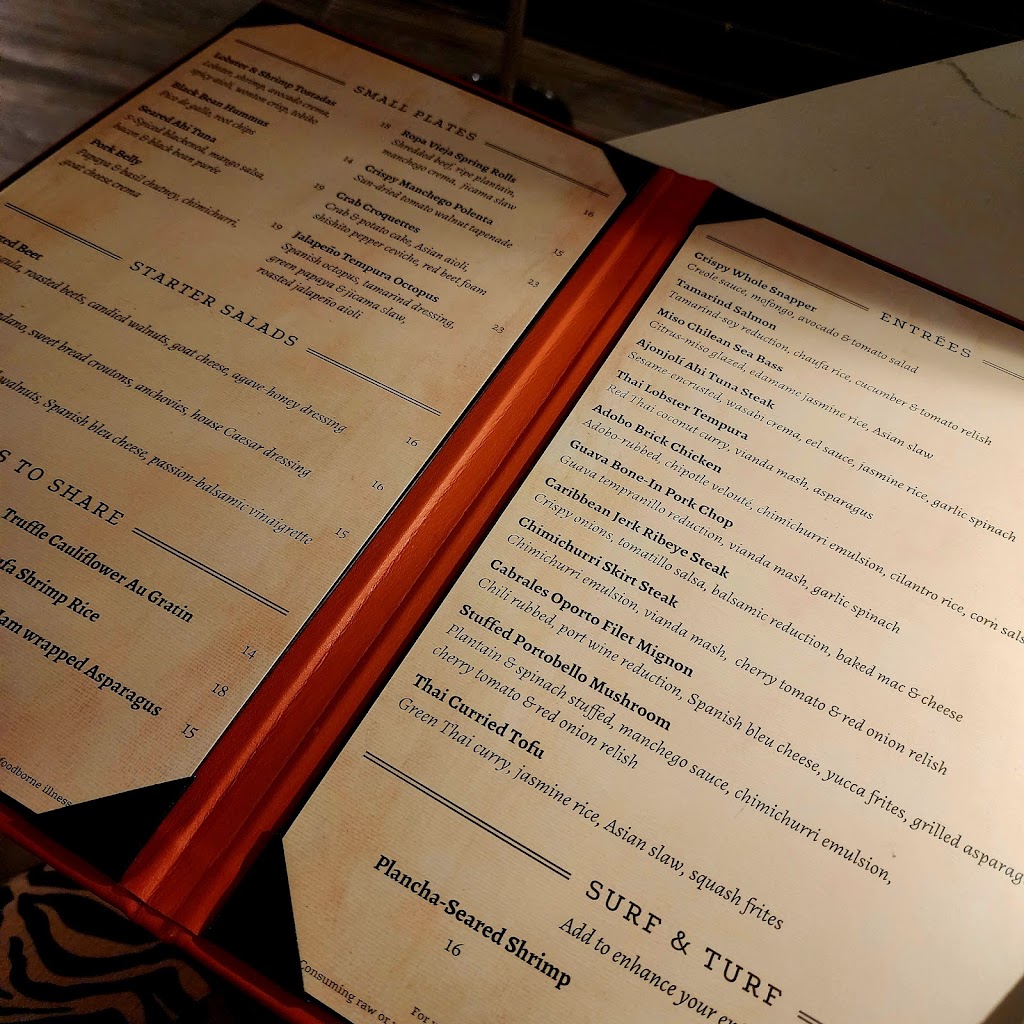 SMALL PLATES
Lobster & Shrimp Tostadas
Lobster, shrimp, avocado crema,
spicy aioli, wonton crisp, tobiko
18
Black Bean Hummus
Pico de gallo, root chips
14
Seared Ahi Tuna
5-Spiced blackened, mango salsa,
bacon & black bean purée
19
Pork Belly
Papaya & basil chutney, chimichurri,
goat cheese crema
19
Ropa Vieja Spring Rolls
Shredded beef, ripe plantain,
manchego crema, jicama slaw
16
Crispy Manchego Polenta
Sun-dried tomato walnut tapenade
15
Crab Croquettes
Crab & potato cake, Asian aioli,
shishito pepper ceviche, red beet foam
23
Jalapeño Tempura Octopus
Spanish octopus, tamarind dressing,
green papaya & jicama slaw,
roasted jalapeño aioli
23
STARTER SALADS
Beet
roasted beets, candied walnuts, goat cheese, agave-honey dressing
16
sweet bread croutons, anchovies, house Caesar dressing
16
walnuts, Spanish bleu cheese, passion-balsamic vinaigrette
15
S TO SHARE
Truffle Cauliflower Au Gratin
14
Shrimp Rice
18
wrapped Asparagus
15
foodborne illness
ENTRÉES
Crispy Whole Snapper
Creole sauce, mofongo, avocado & tomato salad
Tamarind Salmon
Tamarind-soy reduction, chaufa rice, cucumber & tomato relish
Miso Chilean Sea Bass
Citrus-miso glazed, edamame jasmine rice, Asian slaw
Ajonjolí Ahi Tuna Steak
Sesame-encrusted, wasabi crema, eel sauce, jasmine rice, garlic spinach
Thai Lobster Tempura
Red Thai coconut curry, vianda mash, asparagus
Adobo Brick Chicken
Adobo-rubbed, chipotle velouté, chimichurri emulsion, cilantro rice, corn sals
Guava Bone-In Pork Chop
Guava tempranillo reduction, vianda mash, garlic spinach
Caribbean Jerk Ribeye Steak
Crispy onions, tomatillo salsa, balsamic reduction, baked mac & cheese
Chimichurri Skirt Steak
Chimichurri emulsion, vianda mash, cherry tomato & red onion relish
Cabrales Oporto Filet Mignon
Chili rubbed, port wine reduction, Spanish bleu cheese, yucca frites, grilled asparag
Stuffed Portobello Mushroom
Plantain & spinach stuffed, manchego sauce, chimichurri emulsion,
cherry tomato & red onion relish
Thai Curried Tofu
Green Thai curry, jasmine rice, Asian slaw, squash frites
SURF & TURF
Add to enhance your en
Plancha-Seared Shrimp
16
Consuming raw or